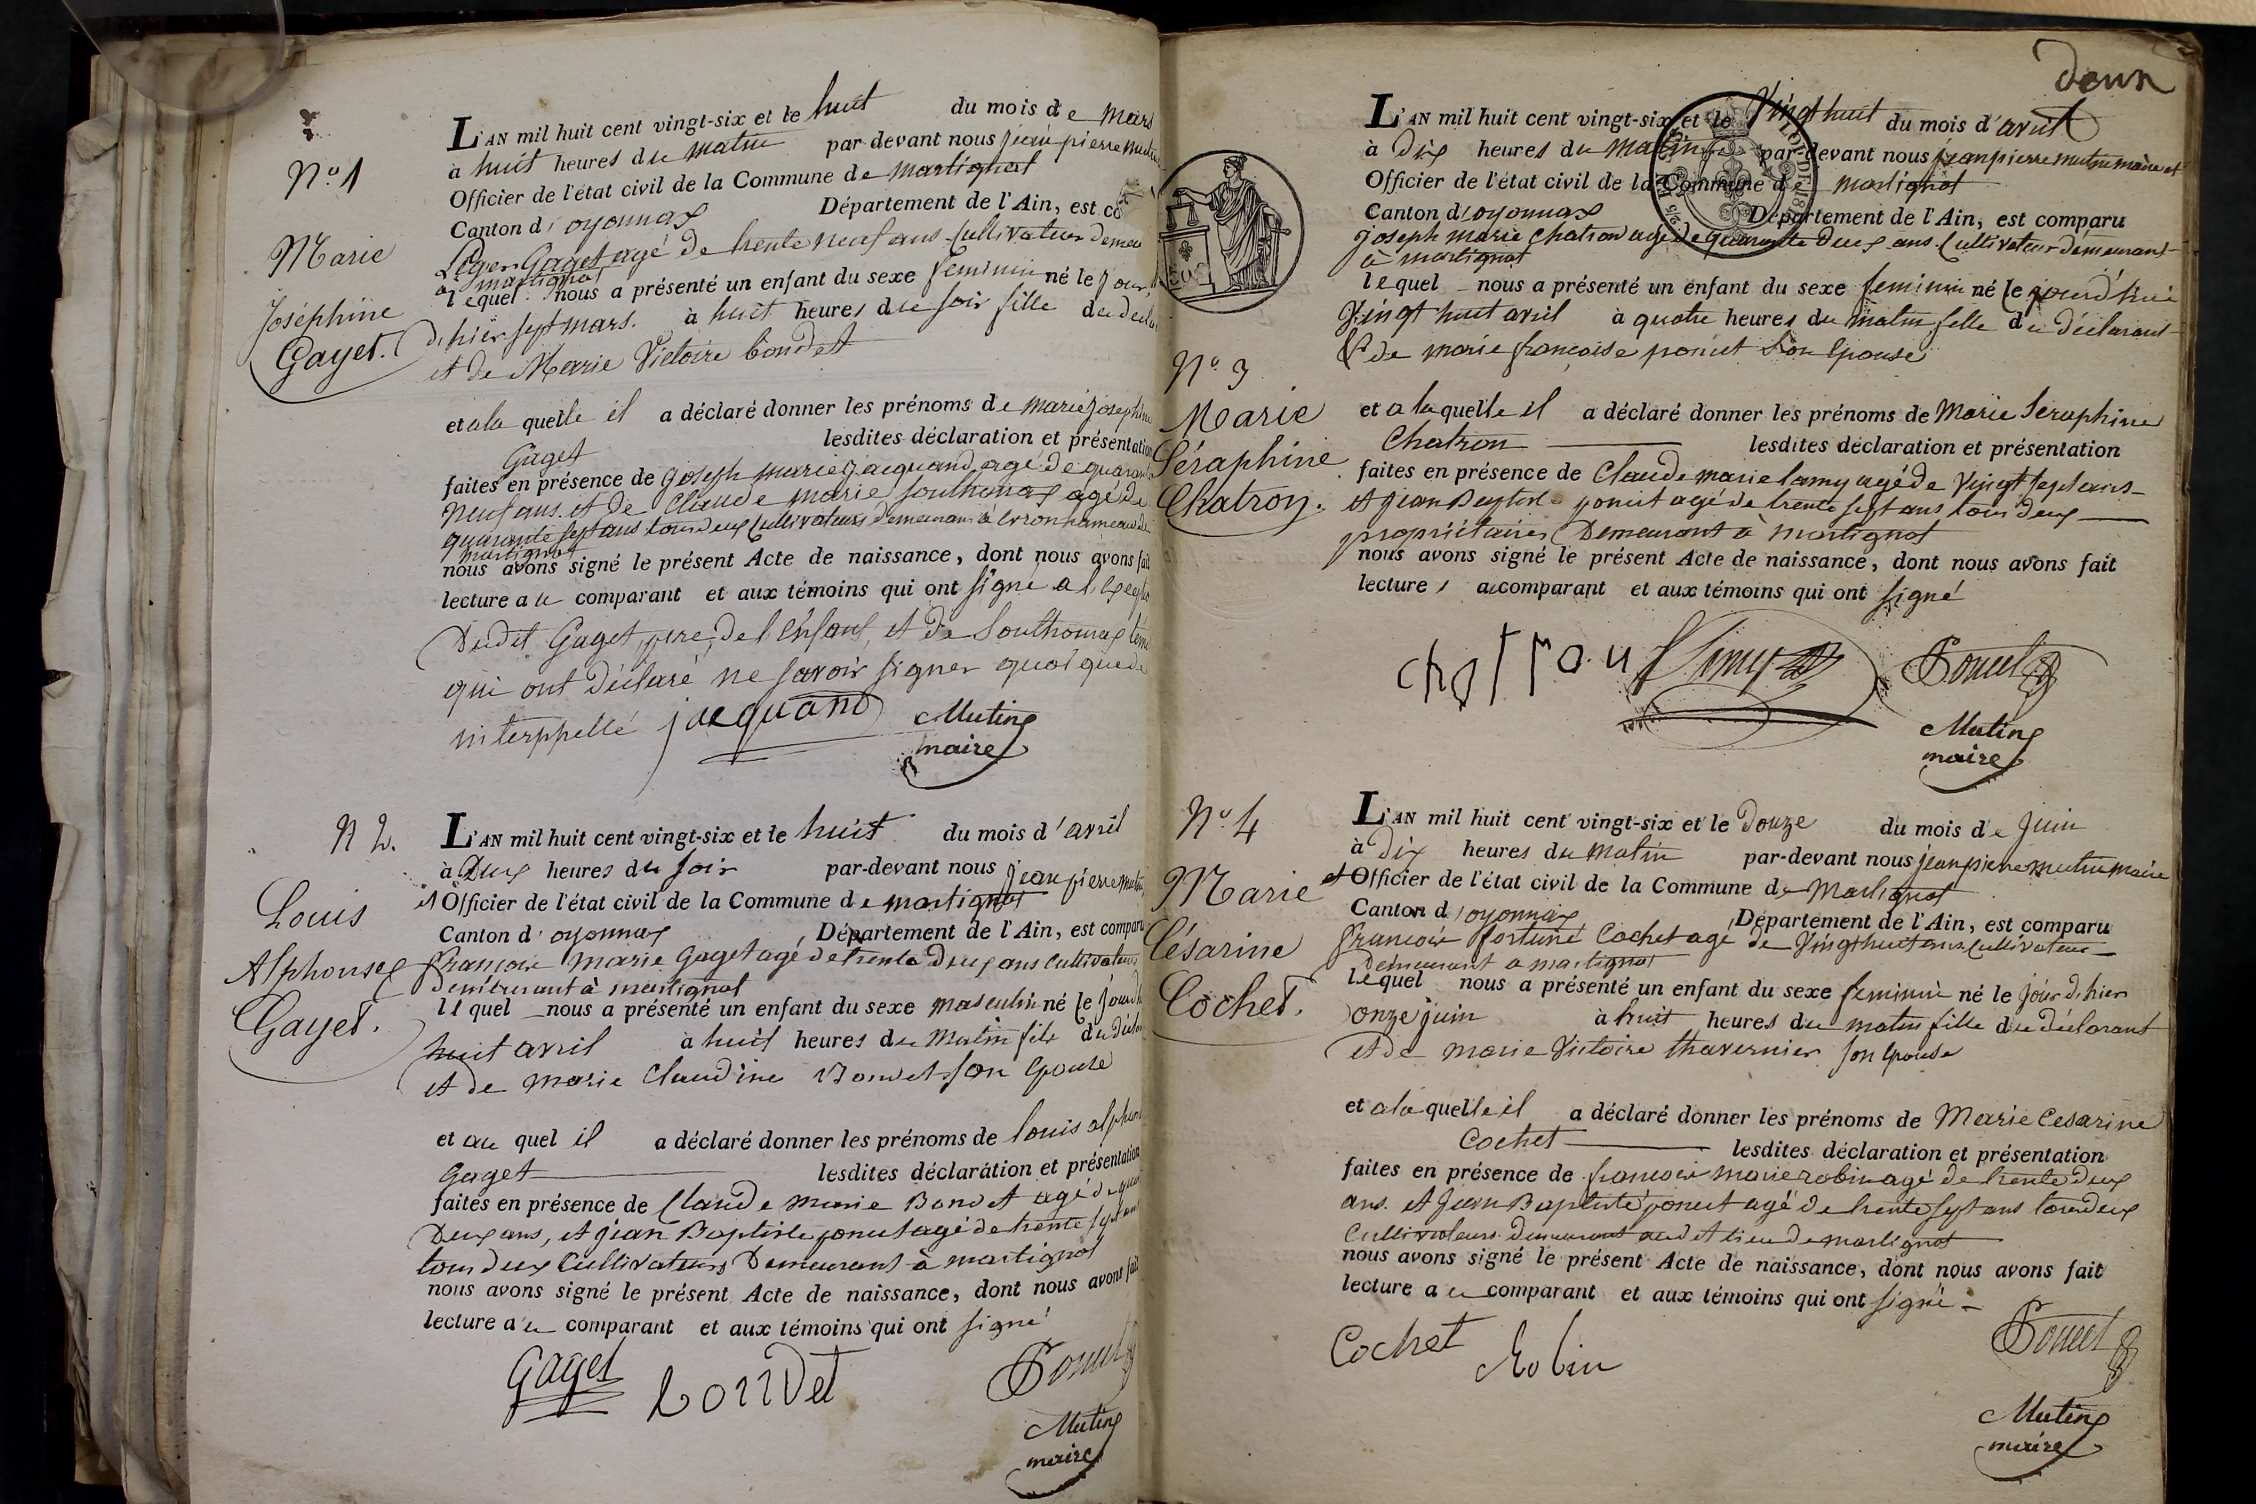 N.o 1
Marie
Joséphine
Gayet.
L'AN mil huit cent vingt-six et le huit du mois de mars
à huit heures du matin par-devant nous jean pierre mutin
Officier de l'état civil de la Commune de martignat
Canton d'oyonnax Département de l'Ain, est co
Gaget agé de trente neuf ans Cultivateur demeu
à martignat
lequel nous a présenté un enfant du sexe feminin né le jour
d'hier sept mars. à huit heures du soir fille du decla
et de Marie Victoire Bondet
et a la quelle il a déclaré donner les prénoms de marie josephine
Gaget lesdites déclaration et présentation
faites en présence de joseph marie jacquand agé de quarante
neuf ans. et de Claude marie Southonax agé de
quarante sept ans tous deux Cultivateurs demeurant à Evron hameau de
martignat
nous avons signé le présent Acte de naissance, dont nous avons fait
lecture au comparant et aux témoins qui ont signé a l'exeption
Dudit Gaget, pere, de l'enfant, et de Southonax tem
qui ont déclaré ne savoir signer quoi que de
interppellé jacquand Mutin
maire
N 2.
Louis
Alphonse
Gayet.
L'AN mil huit cent vingt-six et le huit du mois d'avril
à Deux heures du soir par-devant nous jean pierre mutin
et Officier de l'état civil de la Commune de martignat
Canton d'oyonnax Département de l'Ain, est comparu
francois marie Gaget agé de trente deux ans cultivateur
demeurant à martignat
lequel nous a présenté un enfant du sexe masculin né le jourd
huit avril à huit heures du matin fils du déclar
et de marie Claudine Bondet son Epouse
et au quel il a déclaré donner les prénoms de louis alphon
Gaget lesdites déclaration et présentation
faites en présence de Claude marie Bondet agé de quar
Deux ans, et jean Baptiste poncet agé de trente sept ans
tous deux Cultivateurs Demeurant à martignat
nous avons signé le présent Acte de naissance, dont nous avons fait
lecture au comparant et aux témoins qui ont signé
Gaget Bondet Poncet
Mutin
maire
deux
N.o 3
Marie
Séraphine
Chatron.
L'AN mil huit cent vingt-six et le Vingt huit du mois d'avril
à Dix heures du matin par-devant nous jean pierre mutin maire et
Officier de l'état civil de la Commune de martignat
Canton d'oyonnax Département de l'Ain, est comparu
joseph marie Chatron agé de quarante Deux ans Cultivateur demeurant
à martignat
lequel nous a présenté un enfant du sexe feminin né le jourd'hui
Vingt huit avril à quatre heures du matin fille du déclarant
& de marie françoise poncet son Epouse
et a la quelle il a déclaré donner les prénoms de Marie Seraphine
Chatron lesdites déclaration et présentation
faites en présence de Claude marie lamy agé de Vingt sept ans
et jean Baptiste poncet agé de trente sept ans tous deux
propriétaires Demeurant à martignat
nous avons signé le présent Acte de naissance, dont nous avons fait
lecture au comparant et aux témoins qui ont signé
chatron Lamy Poncet
Mutin
maire
N.o 4
Marie
Césarine
Cochet.
L'AN mil huit cent vingt-six et le Douze du mois de juin
à dix heures du matin par-devant nous jean pierre mutin maire
et Officier de l'état civil de la Commune de Martignat
Canton d'oyonnax Département de l'Ain, est comparu
francois fortuné Cochet agé de Vingt huit ans Cultivateur
demeurant a martignat
lequel nous a présenté un enfant du sexe feminin né le jour d'hier
onze juin à huit heures du matin fille du déclarant
et de marie Victoire thavernier son Epouse
et a la quelle il a déclaré donner les prénoms de Marie Cesarine
Cochet lesdites déclaration et présentation
faites en présence de francois marie robin agé de trente deux
ans. et jean Baptiste poncet agé de trente sept ans tous deux
Cultivateurs Demeurant audit lieu de martignat
nous avons signé le présent Acte de naissance, dont nous avons fait
lecture au comparant et aux témoins qui ont signé
Cochet Robin Poncet
Mutin
maire